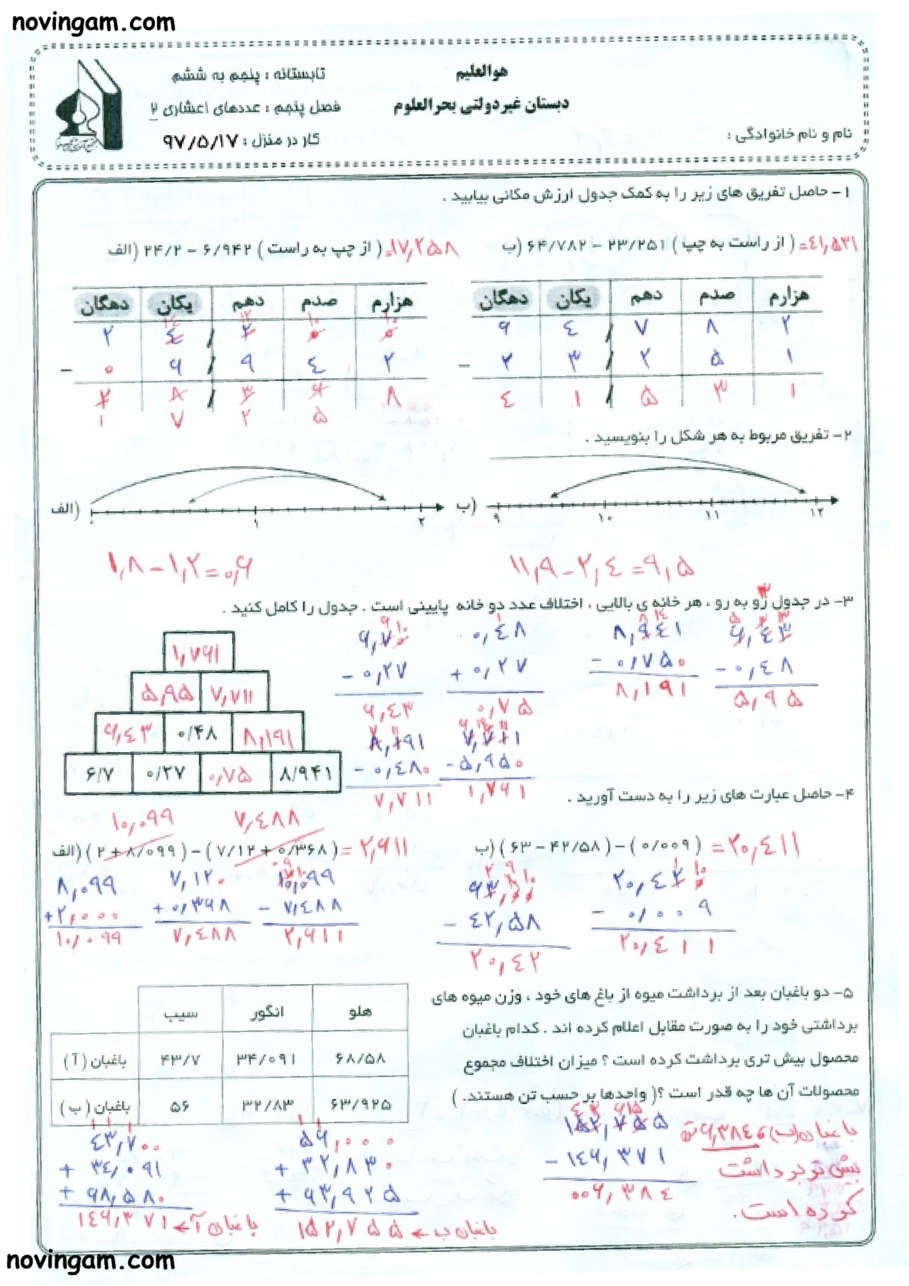 novingam.com
هوالعلیم
دبستان غیردولتی بحرالعلوم
نام و نام خانوادگی :
تابستانه : پنجم به ششم
فصل پنجم : عددهای اعشاری ۲
کار در منزل : ۹۷/۵/۱۷
۱- حاصل تفریق های زیر را به کمک جدول ارزش مکانی بیابید .
الف) ۲۴/۲ - ۶/۹۴۲ ( از چپ به راست ) =۱۷,۲۵۸
ب) ۶۴/۷۸۲ - ۲۳/۲۵۱ ( از راست به چپ ) =٤۱,۵۳۱
دهگان یکان دهم صدم هزارم
۲ ٤ , ۲ ۰ ۰
- ۰ ۶ , ۹ ٤ ۲
۲ ۸ , ۳ ۶ ۸
۱ ۷ ۲ ۵
دهگان یکان دهم صدم هزارم
۶ ٤ , ۷ ۸ ۲
- ۲ ۳ , ۲ ۵ ۱
٤ ۱ , ۵ ۳ ۱
۲- تفریق مربوط به هر شکل را بنویسید .
الف) ۰ ۱ ۲
ب) ۹ ۱۰ ۱۱ ۱۲
۱,۸ - ۱,۲ = ۰,۶
۱۱,۹ - ۲,٤ = ۹,۵
۳- در جدول رو به رو ، هر خانه ی بالایی ، اختلاف عدد دو خانه پایینی است . جدول را کامل کنید .
۱,۷۶۱
۵,۹۵ ۷,۷۱۱
۶,٤۳ ۰/۴۸ ۸,۱۹۱
۶/۷ ۰/۲۷ ۰,۷۵ ۸/۹۴۱
۶,۷۰ - ۰,۲۷ ۶,٤۳
۰,٤۸ + ۰,۲۷ ۰,۷۵
۸,۹٤۱ - ۰,۷۵۰ ۸,۱۹۱
۶,٤۳ - ۰,٤۸ ۵,۹۵
۸,۱۹۱ - ۰,٤۸۰ ۷,۷۱۱
۷,۷۱۱ - ۵,۹۵۰ ۱,۷۶۱
۴- حاصل عبارت های زیر را به دست آورید .
۱۰,۰۹۹ ۷,٤۸۸
الف) (۲ + ۸/۰۹۹) - (۷/۱۲ + ۰/۳۶۸) = ۲,۶۱۱
ب) (۶۳ - ۴۲/۵۸) - (۰/۰۰۹) = ۲۰,٤۱۱
۸,۰۹۹ +۲,۰۰۰ ۱۰,۰۹۹
۷,۱۲۰ + ۰,۳۶۸ ۷,٤۸۸
۱۰,۰۹۹ - ۷,٤۸۸ ۲,۶۱۱
۶۳,۰۰ - ٤۲,۵۸ ۲۰,٤۲
۲۰,٤۲۰ - ۰,۰۰۹ ۲۰,٤۱۱
۵- دو باغبان بعد از برداشت میوه از باغ های خود ، وزن میوه های
برداشتی خود را به صورت مقابل اعلام کرده اند . کدام باغبان
محصول بیش تری برداشت کرده است ؟ میزان اختلاف مجموع
محصولات آن ها چه قدر است ؟( واحدها بر حسب تن هستند. )
سیب انگور هلو
باغبان ( آ ) ۴۳/۷ ۳۴/۰۹۱ ۶۸/۵۸
باغبان ( ب ) ۵۶ ۳۲/۸۳ ۶۳/۹۲۵
٤۳,۷۰۰
+ ۳٤,۰۹۱
+ ۶۸,۵۸۰
۱٤۶,۳۷۱ ← باغبان آ
۵۶,۰۰۰
+ ۳۲,۸۳۰
+ ۶۳,۹۲۵
۱۵۲,۷۵۵ ← باغبان ب
۱۵۲,۷۵۵
- ۱٤۶,۳۷۱
۰۰۶,۳۸٤
باغبان (ب) ۶,۳۸٤ تن
بیش تر برداشت
کرده است.
novingam.com